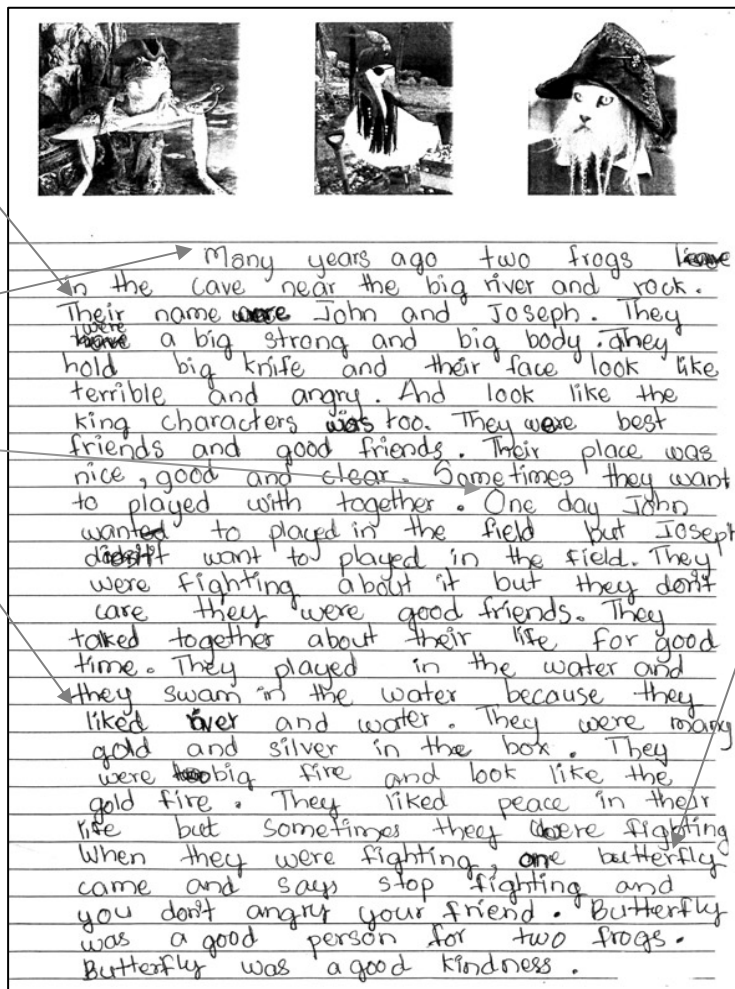 Many years ago two frogs
in the cave near the big river and rock.
Their name were John and Joseph. They
were a big strong and big body. They
hold big knife and their face look like
terrible and angry. And look like the
king characters was too. They were best
friends and good friends. Their place was
nice, good and clear. Sometimes they want
to played with together. One day John
wanted to played in the field but Joseph
didn't want to played in the field. They
were fighting about it but they don't
care they were good friends. They
talked together about their life for good
time. They played in the water and
they swam in the water because they
liked river and water. They were many
gold and silver in the box. They
were big fire and look like the
gold fire. They liked peace in their
life but sometimes they were fighting
When they were fighting, one butterfly
came and says stop fighting and
you don't angry your friend. Butterfly
was a good person for two frogs.
Butterfly was a good kindness.